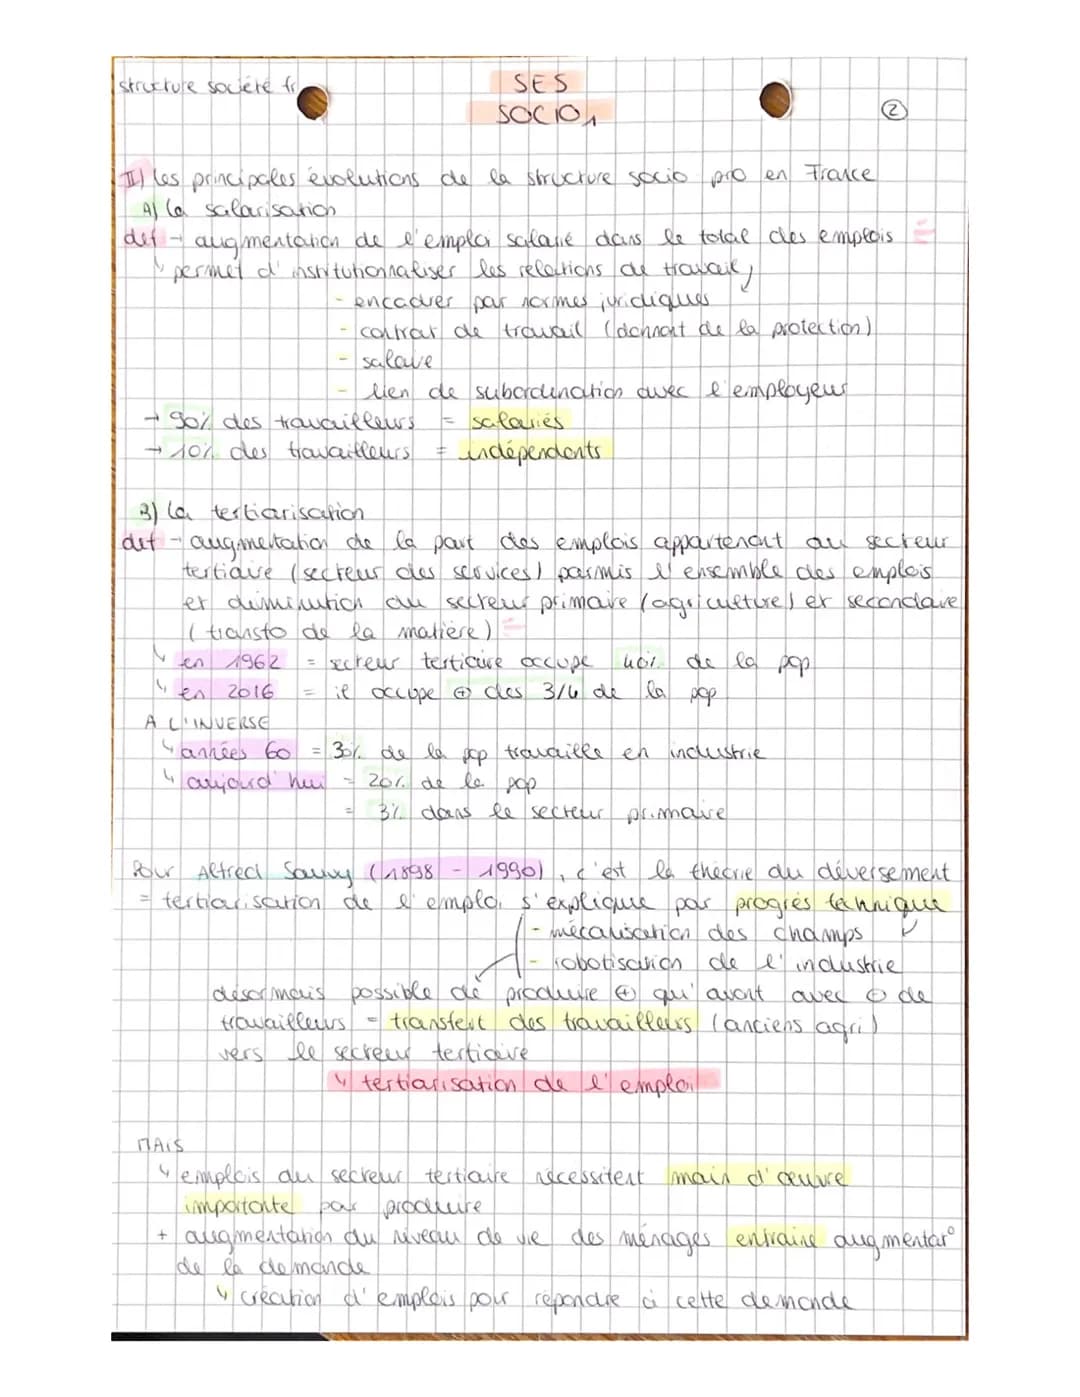 structure société fr
SES
SOCIO 1
②
II) Les principales évolutions de la structure socio pro en France
A) La salarisation
def → augmentation de l'emploi salarié dans le total des emplois
↳ permet d'institutionnaliser les relations de travail
- encadrer par normes juridiques
- contrat de travail (donnant de la protection)
- salaire
- lien de subordination avec l'employeur
→ 90% des travailleurs = salariés
→ 10% des travailleurs = indépendants
B) La tertiarisation
def → augmentation de la part des emplois appartenant au secteur
tertiaire (secteur des services) parmis l'ensemble des emplois
et diminution du secteur primaire (agriculture) et secondaire
(transfo de la matière)
↳ en 1962 = secteur tertiaire occupe 40% de la pop
↳ en 2016 = il occupe ⊕ des 3/4 de la pop
A L'INVERSE
↳ années 60 = 30% de la pop travaille en industrie
↳ aujourd'hui = 20% de la pop
= 3% dans le secteur primaire
Pour Alfred Sauvy (1898 - 1990), c'est la théorie du déversement
= tertiarisation de l'emploi s'explique par progrès technique
- mécanisation des champs
- robotisation de l'industrie
désormais possible de produire ⊕ qu'avant avec ⊖ de
travailleurs = transfert des travailleurs (anciens agri)
vers le secteur tertiaire
↳ tertiarisation de l'emploi
MAIS
↳ emplois du secteur tertiaire nécessitent main d'œuvre
importante par produire
+ augmentation du niveau de vie des ménages entraine augmentat°
de la demande
↳ création d'emplois pour répondre à cette demande